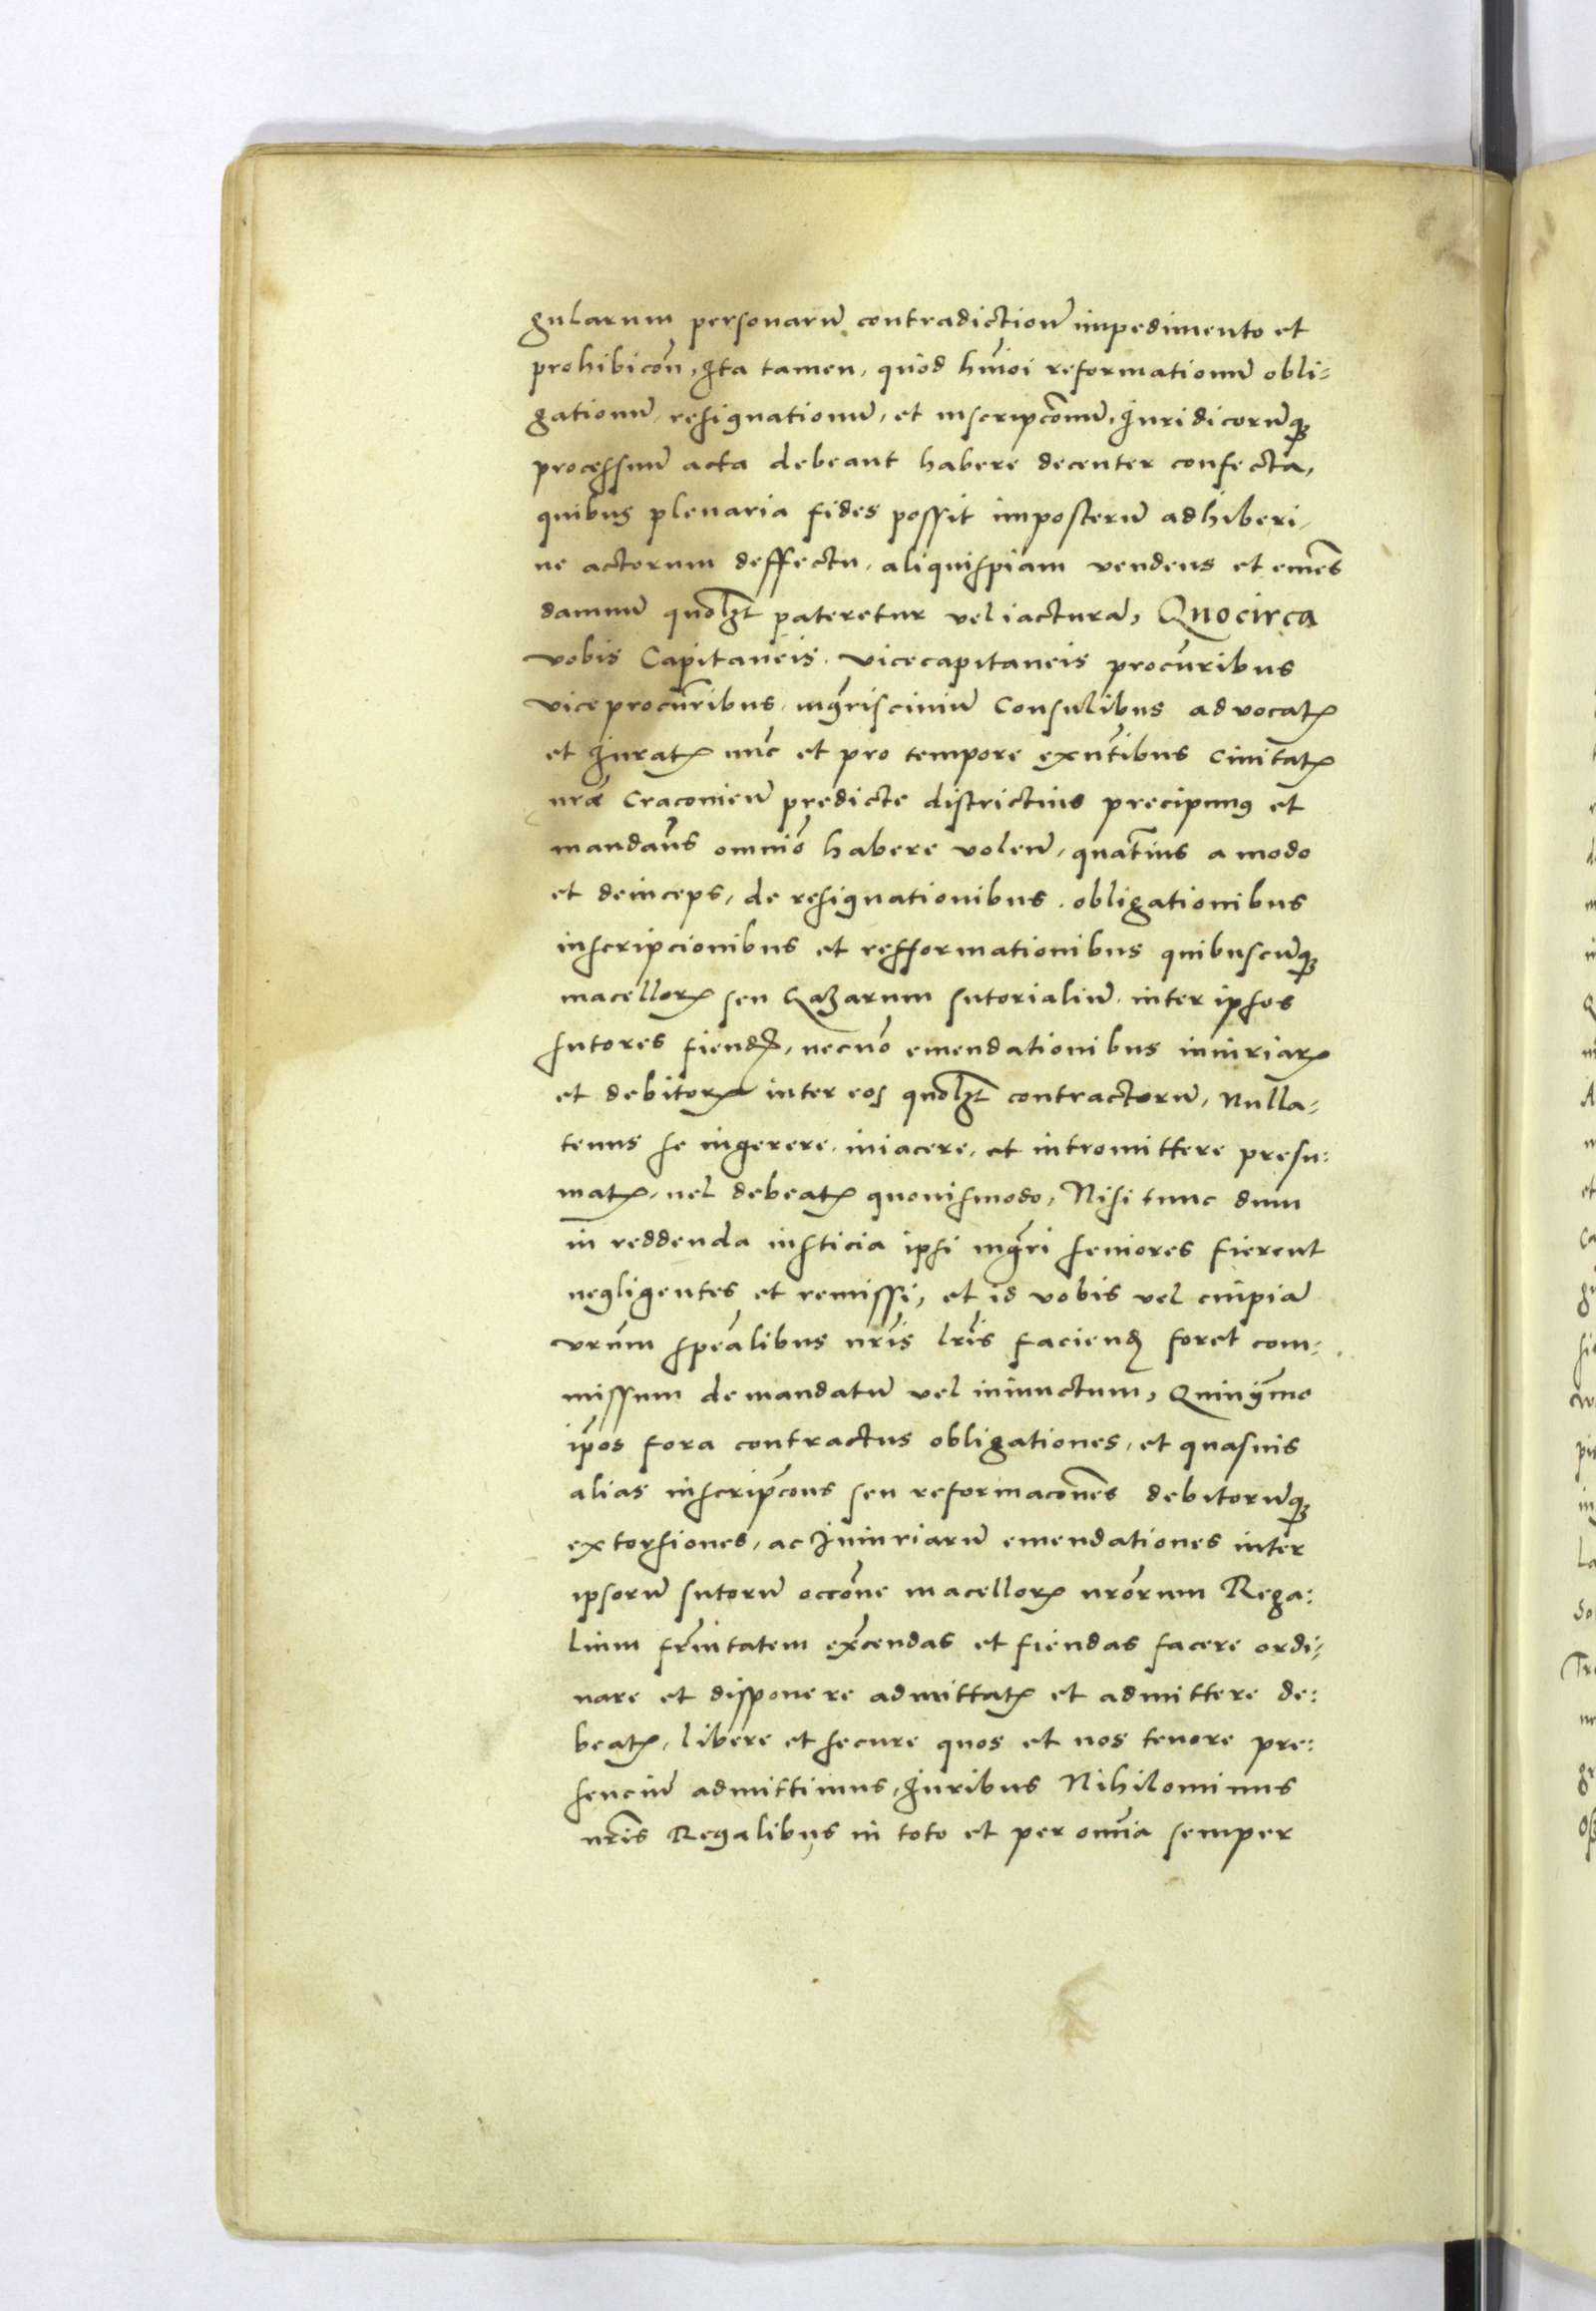 gularum personarū contradictioū impedimento et
prohibicōn, Ita tamen, quod hm̄oi reformationū obli-
gationū resignationū, et inscripcōnū, Iuridicorūq3
processuū acta debeant habere decenter confecta,
quibus plenaria fides possit imposterū adhiberi,
ne actorum deffectu, aliquispiam vendens et emēs
damnū quol3t pateretur vel iacturā, Quocirca
vobis Capitaneis. vicecapitaneis procūribus
viceprocūribus, mgr̄iscivium Consulibus advocatꝭ
et Iuratꝭ nūc et pro tempore exn̄tibus Civitatꝭ
nr̄ae Cracovien̄ predicte districtius precipimus et
mandan̄s omnīo habere volen̄, quaten̄us a modo
et deinceps, de resignationibus. obligationibus
inscripcionibus et refformationibus quibuscūq3
macellorꝭ seu Cazarum sutorialiū inter ipsos
sutores fiendꝭ, necnō emendationibus iniuriarꝭ
et debitorꝭ inter eos quol3t contractorū, Nulla-
tenus se ingerere. iniacere, et intromittere presu:
matꝭ, vel debeatꝭ quovismodo, Nisi tunc dum
in reddenda iusticia ipsi mgr̄i seniores fierent
negligentes et remissi, et id vobis vel cuipiā
vrm̄ spēalibus nrīs lrīs faciendꝭ foret com-
missum demandatū vel iniunctum, Quinym̄mo
ip̄os fora contractus obligationes, et quasvis
alias inscripcōns seu reformacōnes debitorūq3
extorsiones, ac Iniuriarū emendationes inter
ipsorū sutorū occōne macellorꝭ nrōrum Rega:
lium frn̄itatem exc̄endas et fiendas facere ordi-
nare et disponere admittatꝭ et admittere de:
beatꝭ, libere et secure quos et nos tenore pre:
senciū admittimus, Iuribus Nihilominus
nrīs Regalibus in toto et per om̄ia semper